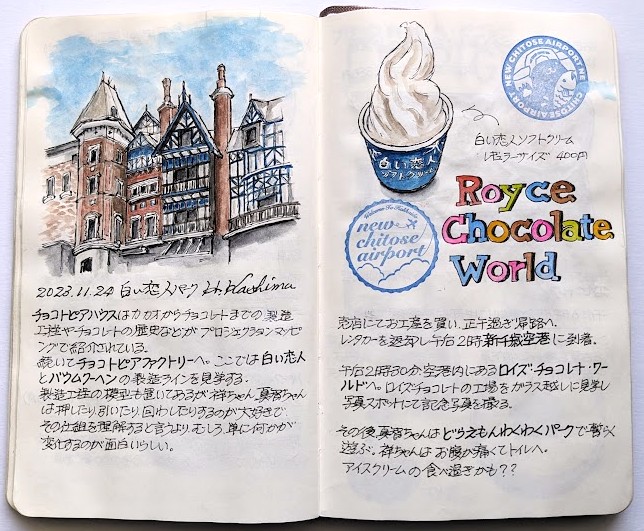 2023.11.24 白い恋人パーク H. Hashima
チョコトピアハウスはカカオからチョコレートまでの製造
工程やチョコレートの歴史などがプロジェクションマッピ
ングで紹介されている。
続いてチョコトピアファクトリーへ。ここでは白い恋人
とバウムクーヘンの製造ラインを見学する。
製造工程の模型も置いてあるが、祥ちゃん、真智ちゃん
は押したり引いたり回わしたりするのが大好きで、
その仕組を理解すると言うより、むしろ、単に何かが
変化するのが面白いらしい。
白い恋人
ソフトクリーム
白い恋人ソフトクリーム
レギュラーサイズ 400円
NEW CHITOSE AIRPORT NEW CHITOSE AIRPORT
Welcome To Hokkaido
new
chitose
airport
Royce
Chocolate
World
売店にてお土産を買い、正午過ぎ帰路へ。
レンタカーを返却し午后2時新千歳空港に到着。
午后2時30分空港内にあるロイズ・チョコレート・ワー
ルドへ。ロイズチョコレートの工場をガラス越しに見学し
写真スポットにて記念写真を撮る。
その後、真智ちゃんはどらえもんわくわくパークで暫らく
遊ぶ。祥ちゃんはお腹が痛くてトイレへ。
アイスクリームの食べ過ぎかも??